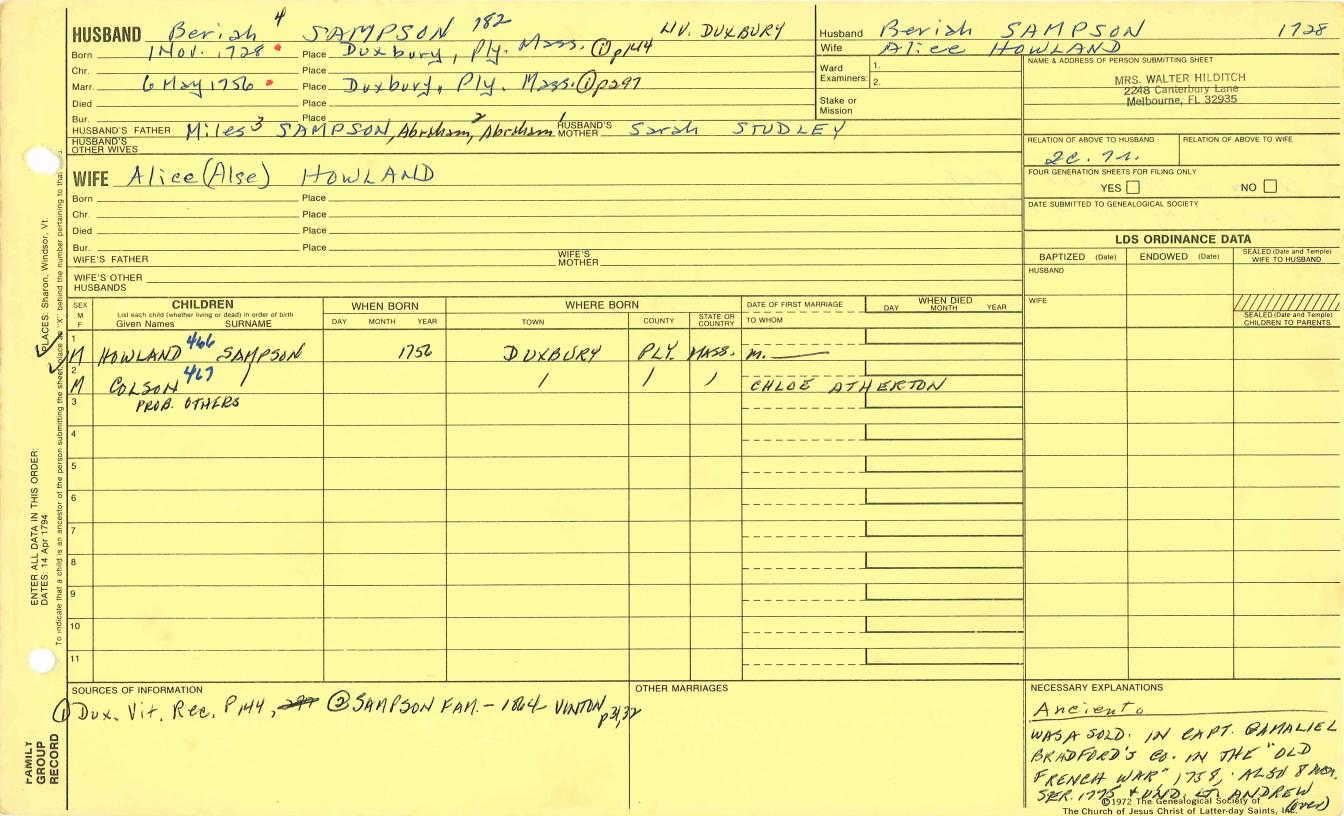 HUSBAND Beriah 4 SAMPSON 182 LIV. DUXBURY
Born 1 Nov. 1728 Place Duxbury, Ply. Mass. ① p144
Chr. Place
Marr. 6 May 1756 Place Duxbury, Ply. Mass. ① p297
Died Place
Bur. Place
HUSBAND'S FATHER Miles 3 SAMPSON, Abraham, 2 Abraham 1 HUSBAND'S MOTHER Sarah STUDLEY
HUSBAND'S OTHER WIVES
Husband Beriah SAMPSON 1728
Wife Alice HOWLAND
Ward Examiners: 1.
2.
Stake or Mission
NAME & ADDRESS OF PERSON SUBMITTING SHEET
MRS. WALTER HILDITCH
2248 Canterbury Lane
Melbourne, FL 32935
RELATION OF ABOVE TO HUSBAND RELATION OF ABOVE TO WIFE
2c.
FOUR GENERATION SHEETS FOR FILING ONLY
YES NO
DATE SUBMITTED TO GENEALOGICAL SOCIETY
WIFE Alice (Alse) HOWLAND
Born Place
Chr. Place
Died Place
Bur. Place
WIFE'S FATHER WIFE'S MOTHER
WIFE'S OTHER HUSBANDS
LDS ORDINANCE DATA
BAPTIZED (Date) ENDOWED (Date) SEALED (Date and Temple) WIFE TO HUSBAND
HUSBAND
WIFE
SEALED (Date and Temple) CHILDREN TO PARENTS
SEX M F CHILDREN WHEN BORN WHERE BORN DATE OF FIRST MARRIAGE WHEN DIED
List each child (whether living or dead) in order of birth
Given Names SURNAME DAY MONTH YEAR TOWN COUNTY STATE OR COUNTRY TO WHOM DAY MONTH YEAR
1 M HOWLAND 466 SAMPSON 1756 DUXBURY PLY. MASS. m.
2 M COLSON 467 / / / / CHLOE ATHERTON
3 PROB. OTHERS
4
5
6
7
8
9
10
11
SOURCES OF INFORMATION
① Dux. Vit. Rec. P144, ② SAMPSON FAM. - 1864 VINTON p31,32
OTHER MARRIAGES
NECESSARY EXPLANATIONS
Ancient.
WAS A SOLD. IN CAPT. GAMALIEL
BRADFORD'S CO. IN THE "OLD
FRENCH WAR" 1758, ALSO 8 MOS.
SER. 1775 & UND. LT. ANDREW
(over)
©1972 The Genealogical Society of
The Church of Jesus Christ of Latter-day Saints, Inc.
FAMILY GROUP RECORD
ENTER ALL DATA IN THIS ORDER:
DATES: 14 Apr 1794
PLACES: Sharon, Windsor, Vt
To indicate that a child is an ancestor of the person submitting the sheet, place an "X" behind the number pertaining to that